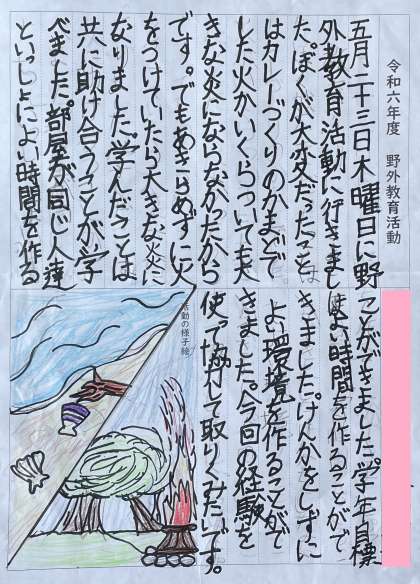 令和六年度　野外教育活動
五月二十三日木曜日に野
外教育活動に行きまし
た。ぼくが大変だったこと
はカレーづくりのかまどで
した火がいくらついても大
きな炎にならなかったから
です。でもあきらめずに火
をつけていたら大きな炎に
なりました。学んだことは
共に助け合うことが学
べました。部屋が同じ人達
といっしょによい時間を作る
ことができました。学年目標
はよい時間を作ることがで
きました。けんかをしずに
よい環境を作ることがで
きました。今回の経験を
使って協力して取りくみたいです。
活動の様子絵